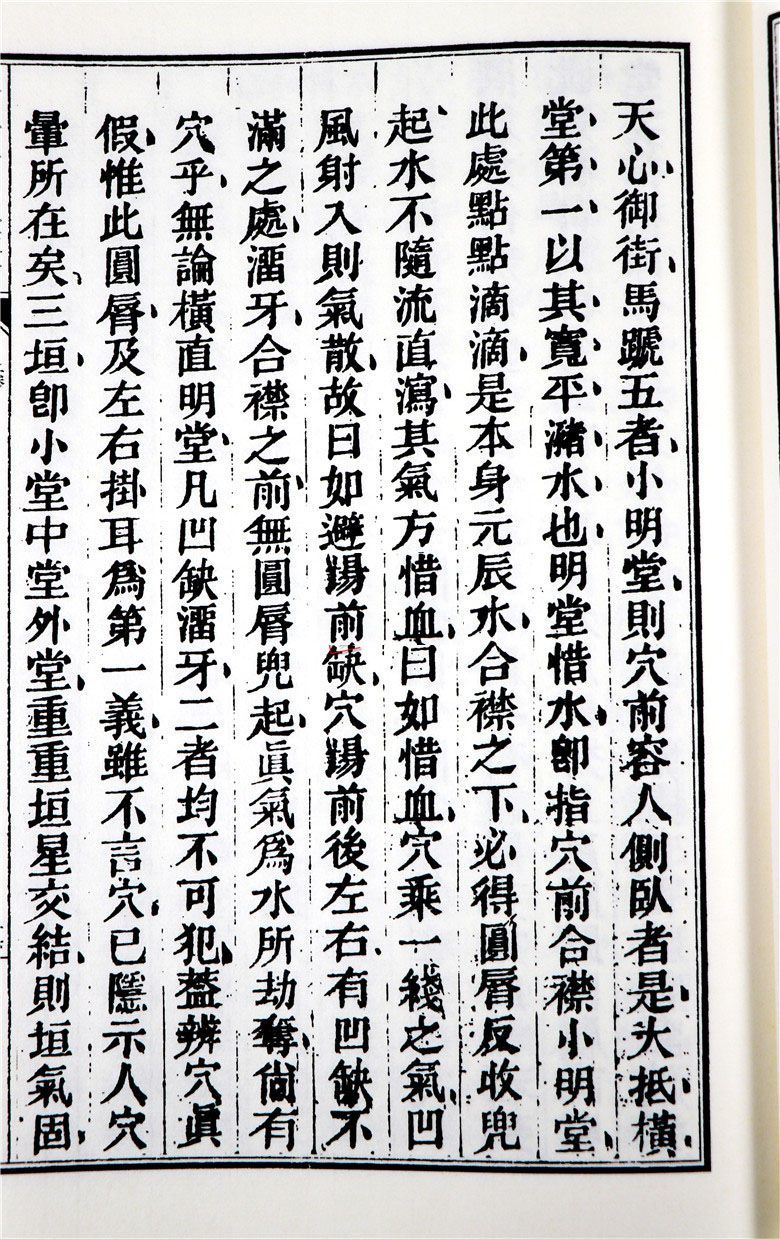 天心御街馬蹏五者小明堂則穴前容人側臥者是大抵橫
堂第一以其寬平瀦水也明堂惜水卽指穴前合襟小明堂
此處點點滴滴是本身元辰水合襟之下必得圓脣反收兜
起水不隨流直瀉其氣方惜血曰如惜血穴乘一綫之氣凹
風射入則氣散故曰如避㬿前缺穴㬿前後左右有凹缺不
滿之處溜牙合襟之前無圓脣兜起眞氣爲水所劫奪倘有
穴乎無論橫直明堂凡凹缺溜牙二者均不可犯葢辨穴眞
假惟此圓脣及左右掛耳爲第一義雖不言穴已隱示人穴
暈所在矣三垣卽小堂中堂外堂重重垣星交結則垣氣固